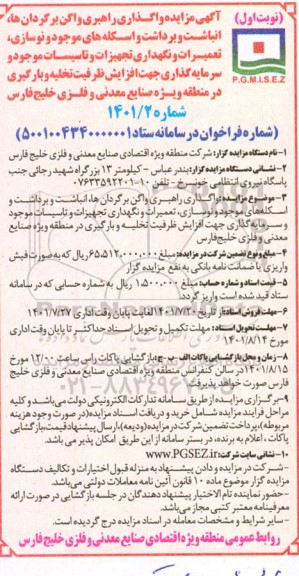 (نوبت اول)
آگهی مزایده واگذاری راهبری واگن برگردان ها،
انباشت و برداشت و اسکله های موجود و نوسازی،
تعمیرات و نگهداری تجهیزات و تاسیسات موجود و
سرمایه گذاری جهت افزایش ظرفیت تخلیه و بارگیری
در منطقه ویژه صنایع معدنی و فلزی خلیج فارس
P.G.M.I.S.E.Z
شماره ۱۴۰۱/۲
(شماره فراخوان در سامانه ستاد ۵۰۰۱۰۰۴۳۴۰۰۰۰۰۰۱)
۱- نام دستگاه مزایده گزار: شرکت منطقه ویژه اقتصادی صنایع معدنی و فلزی خلیج فارس
۲- نشانی دستگاه مزایده گزار: بندرعباس - کیلومتر ۱۳ بزرگراه شهید رجائی جنب
پاسگاه نیروی انتظامی خونسرخ - تلفن ۱۰-۰۷۶۳۳۵۹۲۲۰۱
۳- موضوع مزایده: واگذاری راهبری واگن برگردان ها، انباشت و برداشت و
اسکله های موجود و نوسازی، تعمیرات و نگهداری تجهیزات و تاسیسات موجود
و سرمایه گذاری جهت افزایش ظرفیت تخلیه و بارگیری در منطقه ویژه صنایع
معدنی و فلزی خلیج فارس
۴- مبلغ و نوع تضمین شرکت در مزایده: مبلغ ۶۵،۵۱۲،۰۰۰،۰۰۰ ریال که به صورت فیش
واریزی یا ضمانت نامه بانکی به نفع مزایده گزار
۵- قیمت اسناد و شماره حساب: مبلغ ۱،۵۰۰،۰۰۰ ریال به شماره حسابی که در سامانه
ستاد قید شده است واریز گردد
۶- مهلت فروش اسناد: از تاریخ ۱۴۰۱/۷/۲۰ لغایت پایان وقت اداری ۱۴۰۱/۷/۲۷
۷- مهلت تحویل اسناد: مهلت تکمیل و تحویل اسناد حداکثر تا پایان وقت اداری
مورخ ۱۴۰۱/۸/۱۴
۸- زمان و محل بازگشایی پاکات الف - ب - ج: بازگشایی پاکات راس ساعت ۱۲:۰۰ مورخ
۱۴۰۱/۸/۱۵ در سالن کنفرانس منطقه ویژه اقتصادی صنایع معدنی و فلزی خلیج
فارس صورت خواهد پذیرفت
۹- برگزاری مزایده از طریق سامانه تدارکات الکترونیکی دولت می باشد و کلیه
مراحل فرایند مزایده شامل خرید و دریافت اسناد مزایده (در صورت وجود هزینه
مربوطه)، پرداخت تضمین شرکت در مزایده (ودیعه)، ارسال پیشنهاد قیمت، بازگشایی
پاکات، اعلام به برنده، در بستر سامانه از این طریق امکان پذیر می باشد.
۱۰- نشانی سایت شرکت: www.PGSEZ.ir
- شرکت در مزایده و دادن پیشنهاد به منزله قبول اختیارات و تکالیف دستگاه
مزایده گزار موضوع ماده ۱۰ قانون آئین نامه معاملات دولتی می باشد.
- حضور نماینده تام الاختیار پیشنهاد دهندگان در جلسه بازگشایی در صورت ارائه
معرفینامه معتبر کتبی مجاز می باشد.
- سایر شرایط و مشخصات معامله در اسناد مزایده درج گردیده است.
روابط عمومی منطقه ویژه اقتصادی صنایع معدنی و فلزی خلیج فارس